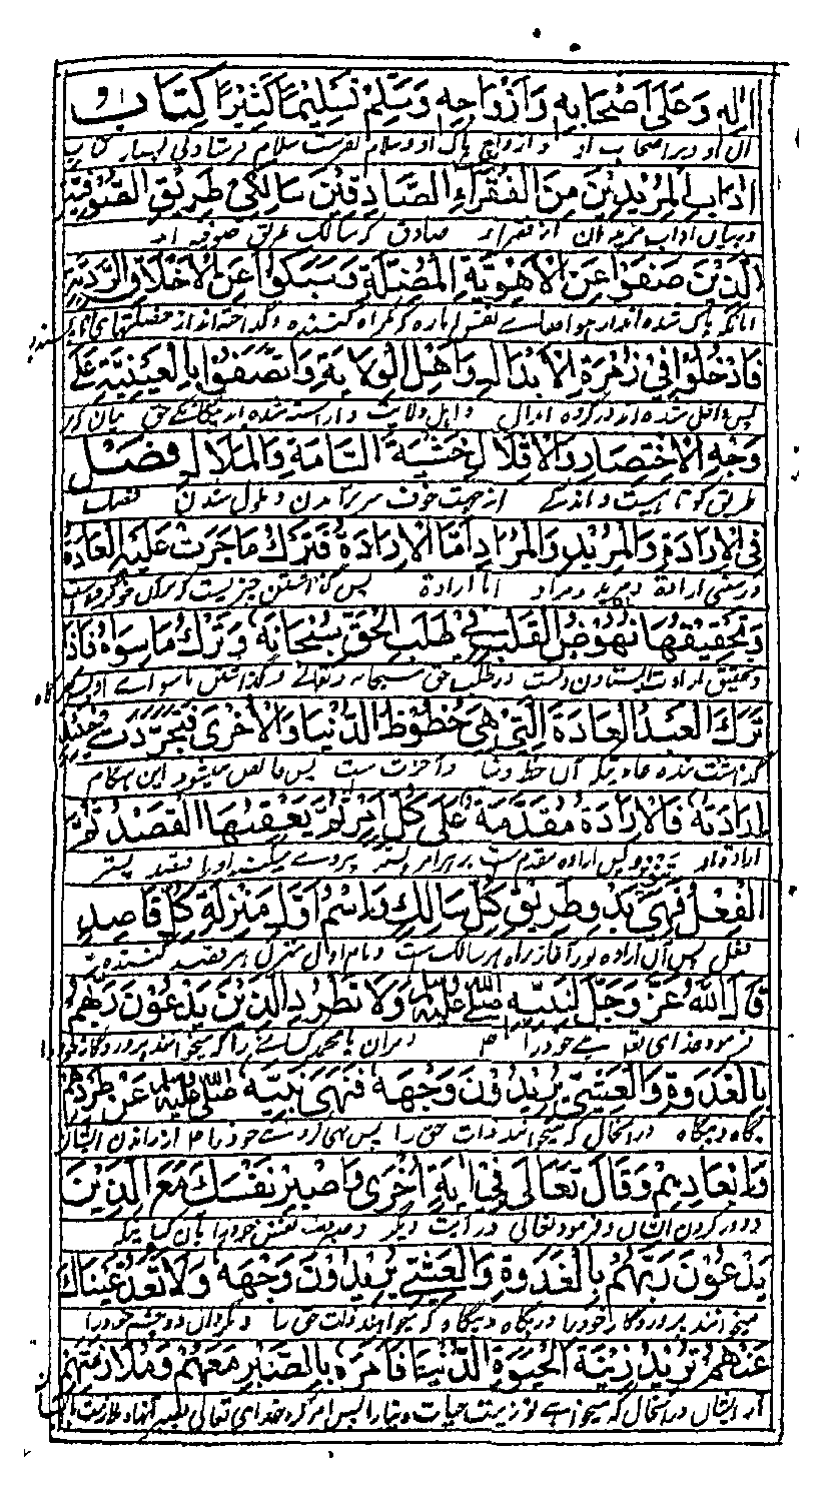 اٰلِهٖ وَعَلٰى اَصْحَابِهٖ وَاَزْوَاجِهٖ وَسَلِّمْ تَسْلِيْمًا كَثِيْرًا كِتَابُ
آل او و بر اصحاب او و ازواج پاک او و سلام بفرست سلام فرستادنی بسیار کتاب
اٰدَابِ الْمُرِيْدِيْنَ مِنَ الْفُقَرَاءِ الصَّادِقِيْنَ سَالِكِيْ طَرِيْقِ الصُّوْفِيَّةِ
در بیان آداب مریدان از فقراء صادق که سالک طریق صوفیه اند
الَّذِيْنَ صَفَوْا عَنِ الْاَهْوِيَةِ الْمُضِلَّةِ وَسَبَكُوْا عَنِ الْاَخْلَاقِ الرَّدِيَّةِ
آنانکه پاک شده اند از هواهای نفس اماره که گمراه کننده و گداخته اند از خصلتهای
فَادْخُلُوْا فِيْ زُمْرَةِ الْاَبْدَالِ وَاَهْلِ الْوِلَايَةِ وَاتَّصَفُوْا بِالْعَيْنِيَّةِ عَلٰى
پس داخل شده اند در گروه ابدال و اهل ولایت و آراسته شده اند
وَجْهِ الْاِخْتِصَارِ وَالْاِقْلَالِ خَشْيَةَ السَّامَةِ وَالْمَلَالِ فَصْلٌ
طریق کوتاهیست و اندکی از جهت خوف سرآمدن و ملول شدن فصل
فِي الْاِرَادَةِ وَالْمُرِيْدِ وَالْمُرَادِ اَمَّا الْاِرَادَةُ فَتَرْكُ مَا جَرَتْ عَلَيْهِ الْعَادَةُ
در معنی ارادة و مرید و مراد اما ارادة پس گذاشتن چیزیست که بران خو کرده است
وَتَحْقِيْقُهَا نُهُوْضُ الْقَلْبِ فِيْ طَلَبِ الْحَقِّ سُبْحَانَهٗ وَتَرْكُ مَا سِوَاهُ فَاِذَا
و تحقیق ارادت ایستادن دلست در طلب حق سبحانه و تعالی و گذاشتن ماسوای او پس هرگاه
تَرَكَ الْعَبْدُ الْعَادَةَ الَّتِيْ هِيَ حُظُوْظُ الدُّنْيَا وَالْاُخْرٰى فَتَجَرَّدَتْ حِيْنَئِذٍ
گذاشت بنده عادتیکه آن حظ دنیا و آخرت ست پس خالص میشود این هنگام
اِرَادَتُهٗ فَالْاِرَادَةُ مُقَدَّمَةٌ عَلٰى كُلِّ اَمْرٍ ثُمَّ يَعْقِبُهَا الْقَصْدُ ثُمَّ
ارادة او پس اراده مقدم ست بر هر امر پستر پیروی میکند او را قصد پستر
الْفِعْلُ فَهِيَ بَدْوُ طَرِيْقِ كُلِّ سَالِكٍ وَاسْمُ اَوَّلِ مَنْزِلَةِ كُلِّ قَاصِدٍ
فعل پس آن اراده بود آغاز راه هر سالک ست و نام اول منزل هر قصد کننده ست
قَالَ اللّٰهُ عَزَّ وَجَلَّ لِنَبِيِّهٖ صَلَّى اللّٰهُ عَلَيْهِ وَسَلَّمَ وَلَا تَطْرُدِ الَّذِيْنَ يَدْعُوْنَ رَبَّهُمْ
فرمود خدای تعالی نبی خود را ۳ و مران یا محمد کسانی را که میخوانند پروردگار خود را
بِالْغَدٰوةِ وَالْعَشِيِّ يُرِيْدُوْنَ وَجْهَهٗ فَنَهٰى نَبِيَّهٗ صَلَّى اللّٰهُ عَلَيْهِ وَسَلَّمَ عَنْ طَرْدِهِمْ
پگاه و بیگاه در آنحال که میخواهند ذات حق را پس نهی کردست خود را از راندن ایشان
وَاِبْعَادِهِمْ وَقَالَ تَعَالٰى فِيْ اٰيَةٍ اُخْرٰى وَاصْبِرْ نَفْسَكَ مَعَ الَّذِيْنَ
و دور کردن ایشان و فرمود تعالی در آیت دیگر و صبر ده نفس خود را بآن کسانیکه
يَدْعُوْنَ رَبَّهُمْ بِالْغَدٰوةِ وَالْعَشِيِّ يُرِيْدُوْنَ وَجْهَهٗ وَلَا تَعْدُ عَيْنَاكَ
میخوانند پروردگار خود را در پگاه و بیگاه که میخواهند ذات حق را و مگردان دو چشم خود را
عَنْهُمْ تُرِيْدُ زِيْنَةَ الْحَيٰوةِ الدُّنْيَا فَاَمَرَهٗ بِالصَّبْرِ مَعَهُمْ وَمُلَازَمَتِهِمْ
از ایشان در آنحال که میخواهی تو زینت حیات دنیا را پس امر کرد خدای تعالی بصبر آنها و ملازمت